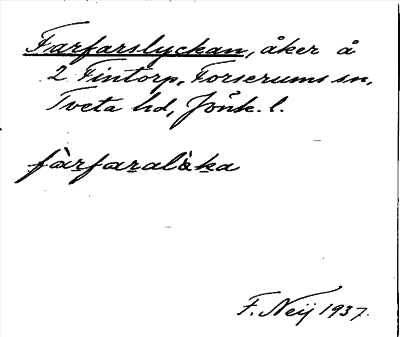 Farfarslyckan, åker å
2 Fintorp, Forserums sn,
Tveta hd, Jönk. l.
fàrfaralo̊ka
F. Neij 1937.